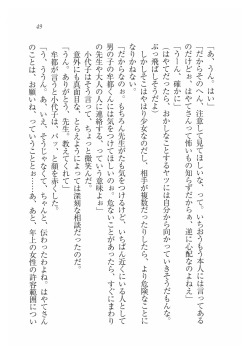 49
「あ、うん。はい」
「だからそのへん、注意して見てほしいなって。いちおうもう本人には言ってある
のだけどぉ、はやてさんって怖いもの知らずだからぁ、逆に心配なのよねぇ」
「うーん、確かに」
「はやてだったら、おかしなことするヤツには自分から向かっていきそうだもんな。
ぶっ飛ばしそう」
しかしそこはやはり少女なのだし、相手が複数だったりしたら、より危険なことに
なりかねない。
「だからなのぉ。もちろん先生がたも気をつけるけど、いちばん近くにいる人として
男の子の牟都くんには気をつけてほしいのぉ。危ないことがあったら、すぐにまわり
の先生や大人の人に連絡する。って、そういう意味よぉ」
小代子はそう言って、ちょっと微笑んだ。
意外にも真面目な、そして場合によっては深刻な相談だったのだ。
「うん。ありがとう、先生。教えてくれて」
牟都が言うと小代子は、パッ、と顔を赤くした。
「ううん。そういうことでぇ……。あ、じゃなくて、ちゃんと、伝わったわよね。はやてさん
のことは、お願いね。って、ことだから……ぁ、あと、年上の女性の許容範囲につい